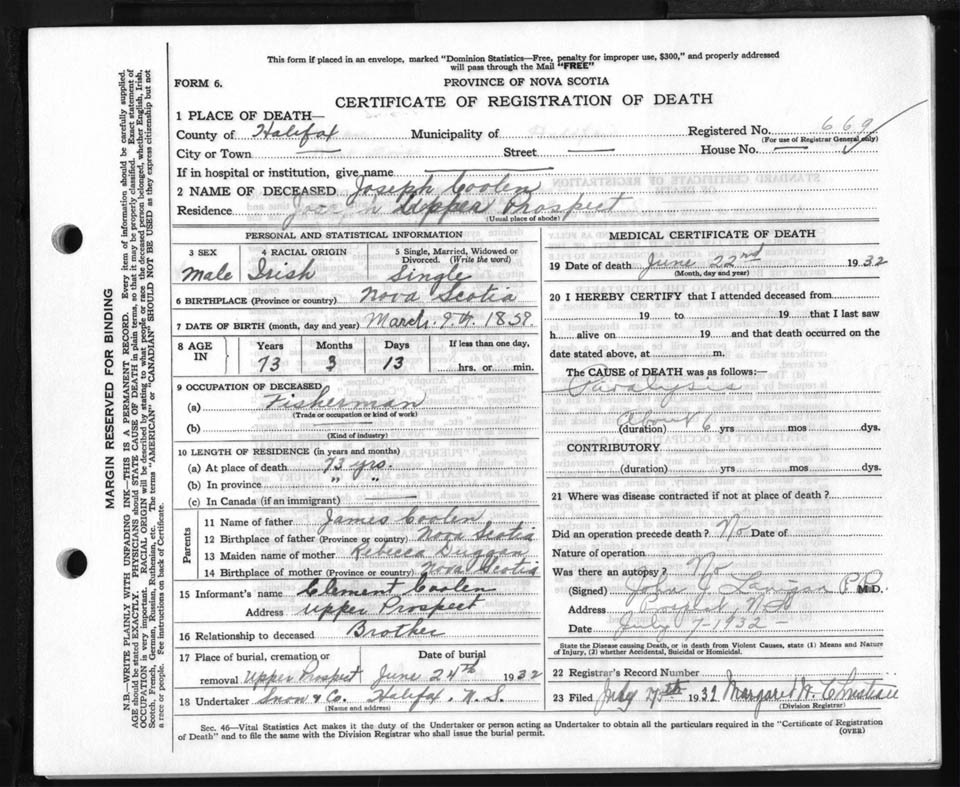 This form if placed in an envelope, marked "Dominion Statistics—Free, penalty for improper use, $300," and properly addressed
will pass through the Mail "FREE"
FORM 6.
PROVINCE OF NOVA SCOTIA
CERTIFICATE OF REGISTRATION OF DEATH
1 PLACE OF DEATH—
County of Halifax Municipality of Registered No. 669
(For use of Registrar General only)
City or Town — Street — House No. —
If in hospital or institution, give name
2 NAME OF DECEASED Joseph Coolen
Residence Upper Prospect
(Usual place of abode)
PERSONAL AND STATISTICAL INFORMATION
3 SEX 4 RACIAL ORIGIN 5 Single, Married, Widowed or
Divorced. (Write the word)
Male Irish Single
6 BIRTHPLACE (Province or country) Nova Scotia
7 DATE OF BIRTH (month, day and year) March. 9th. 1859.
8 AGE IN Years Months Days If less than one day,
73 3 13 hrs. or min.
9 OCCUPATION OF DECEASED
(a) Fisherman
(Trade or occupation or kind of work)
(b)
(Kind of industry)
10 LENGTH OF RESIDENCE (in years and months)
(a) At place of death 73 yrs.
(b) In province " "
(c) In Canada (if an immigrant)
Parents
11 Name of father James Coolen
12 Birthplace of father (Province or country) Nova Scotia
13 Maiden name of mother Rebecca Duggan
14 Birthplace of mother (Province or country) Nova Scotia
15 Informant's name Clement Coolen
Address Upper Prospect
16 Relationship to deceased Brother
17 Place of burial, cremation or Date of burial
removal Upper Prospect June 24th 1932
18 Undertaker Snow & Co. Halifax, N.S.
(Name and address)
MEDICAL CERTIFICATE OF DEATH
19 Date of death June 22nd 1932
(Month, day and year)
20 I HEREBY CERTIFY that I attended deceased from
19 to 19 that I last saw
h alive on 19 and that death occurred on the
date stated above, at m.
The CAUSE of DEATH was as follows:—
Paralysis
About 6
(duration) yrs mos dys.
CONTRIBUTORY
(duration) yrs mos dys.
21 Where was disease contracted if not at place of death?
Did an operation precede death? No Date of
Nature of operation
Was there an autopsy? No
(Signed) John J. P.P. M.D.
Address Prospect, N.S.
Date July 7-1932-
State the Disease causing Death, or in death from Violent Causes, state (1) Means and Nature
of Injury, (2) whether Accidental, Suicidal or Homicidal.
22 Registrar's Record Number
23 Filed July 1932 Margaret W. Christian
(Division Registrar)
Sec. 46—Vital Statistics Act makes it the duty of the Undertaker or person acting as Undertaker to obtain all the particulars required in the "Certificate of Registration
of Death" and to file the same with the Division Registrar who shall issue the burial permit.
(OVER)
MARGIN RESERVED FOR BINDING
N.B.—WRITE PLAINLY WITH UNFADING INK—THIS IS A PERMANENT RECORD. Every item of information should be carefully supplied.
AGE should be stated EXACTLY. PHYSICIANS should STATE CAUSE OF DEATH in plain terms, so that it may be properly classified. Exact statement of
OCCUPATION is very important. RACIAL ORIGIN will be described by stating to what people or race the deceased person belonged, whether English, Irish,
Scotch, French, German, Russian, Ruthenian, etc. The terms "AMERICAN" or "CANADIAN" SHOULD NOT BE USED as they express citizenship but not
a race or people. See instructions on back of Certificate.